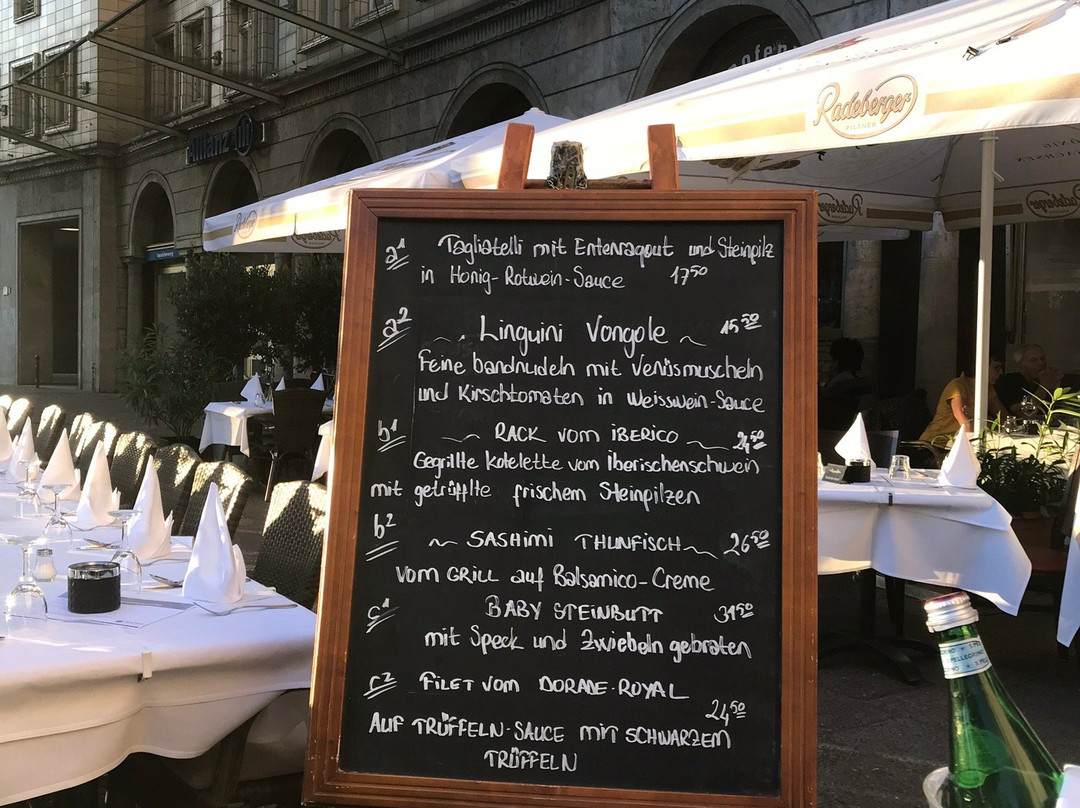 Allianz
Radeberger
PILSNER
Radeberger
Radeberger
a1 Tagliatelli mit Entenragout und Steinpilz
in Honig-Rotwein-Sauce 17 50
a2 ~ Linguini Vongole ~ 15 50
Feine bandnudeln mit Venusmuscheln
und Kirschtomaten in Weisswein-Sauce
b1 ~ RACK VOM IBERICO ~ 24 50
Gegrillte Kotelette vom iberischenschwein
mit getrüfflte frischem Steinpilzen
b2 ~ SASHIMI THUNFISCH ~ 26 50
VOM GRILL auf Balsamico-Creme
c1 BABY STEINBUTT 31 50
mit Speck und Zwiebeln gebraten
c2 FILET VOM DORADE-ROYAL
24 50
AUF TRÜFFELN-SAUCE MIT SCHWARZEM
TRÜFFELN
PELLEGRINO